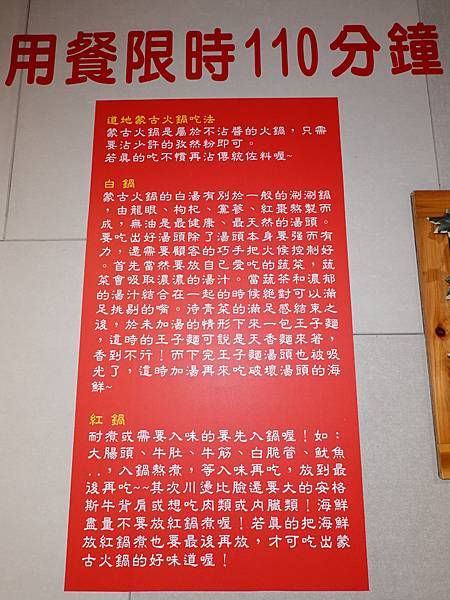 用餐限時110分鐘
道地蒙古火鍋吃法
蒙古火鍋是屬於不沾醬的火鍋，只需
要沾少許的孜然粉即可。
若真的吃不慣再沾傳統佐料喔~
白鍋
蒙古火鍋的白湯有別於一般的涮涮鍋
，由龍眼、枸杞、黨蔘、紅棗熬製而
成，無油是最健康、最天然的湯頭。
要吃出好湯頭除了湯頭本身要強而有
力，還需要顧客的巧手把火候控制好
。首先當然要放自己愛吃的蔬菜，蔬
菜會吸取濃濃的湯汁。當蔬菜和濃郁
的湯汁結合在一起的時候絕對可以滿
足挑剔的嘴。待青菜的滿足感結束之
後，於未加湯的情形下來一包王子麵
，這時的王子麵可說是天香麵來著，
香到不行！而下完王子麵湯頭也被吸
光了，這時加湯再來吃破壞湯頭的海
鮮~
紅鍋
耐煮或需要入味的要先入鍋喔！如：
大腸頭、牛肚、牛筋、白脆管、魷魚
..，入鍋熬煮，等入味再吃，放到最
後再吃~~其次川燙比臉還要大的安格
斯牛背肩或想吃肉類或內臟類！海鮮
盡量不要放紅鍋煮喔！若真的把海鮮
放紅鍋煮也要最後再放，才可吃出蒙
古火鍋的好味道喔！